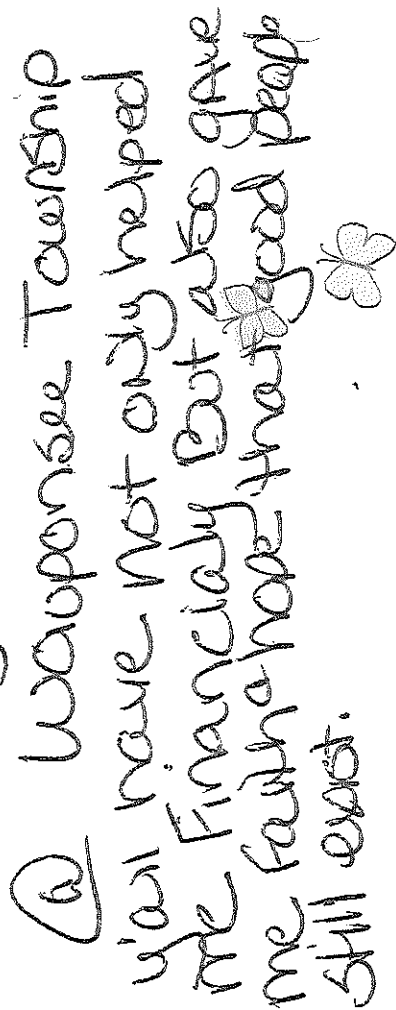 @ Wauponsee Township
y'all have not only helped
me Financialy But also gave
me faith & hope that good peop
still exist.